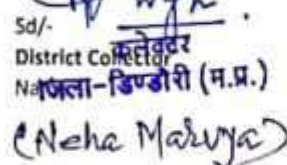 Sd/-
District Collector
कलेक्टर
जिला-डिण्डौरी (म.प्र.)
(Neha Marvya)